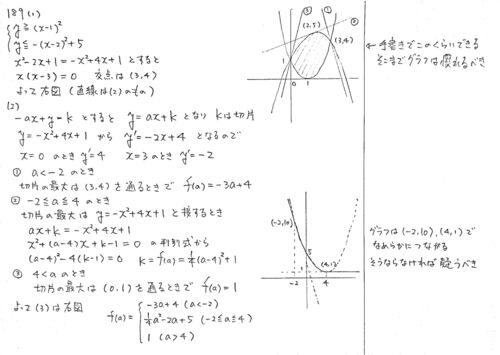 189(1)
{ y ≧ (x-1)²
y ≦ -(x-2)²+5
x²-2x+1 = -x²+4x+1 とすると
x(x-3) = 0 交点は (3,4)
よって右図 (直線は(2)のもの)
(2)
-ax+y = k とすると y = ax+k となり kは切片
y = -x²+4x+1 から y' = -2x+4 となるので
x=0 のとき y'=4 x=3のとき y'=-2
① a<-2 のとき
切片の最大は (3,4) を通るときで f(a) = -3a+4
② -2≦a≦4 のとき
切片の最大は y=-x²+4x+1 と接するとき
ax+k = -x²+4x+1
x²+(a-4)x+k-1 = 0 の判別式から
(a-4)²-4(k-1) = 0 k = f(a) = ¼(a-4)²+1
③ 4<a のとき
切片の最大は (0,1) を通るときで f(a) = 1
よって (3) は右図
f(a) = { -3a+4 (a<-2)
¼a²-2a+5 (-2≦a≦4)
1 (a>4)
③ ①
②
(2,5)
(3,4)
1
0 1
(-2,10)
5
1
(4,1)
-2 4
← 手書きでこのくらいできる
そこまでグラフは慣れるべき
グラフは (-2,10), (4,1) で
なめらかにつながる
そうならなければ疑うべき